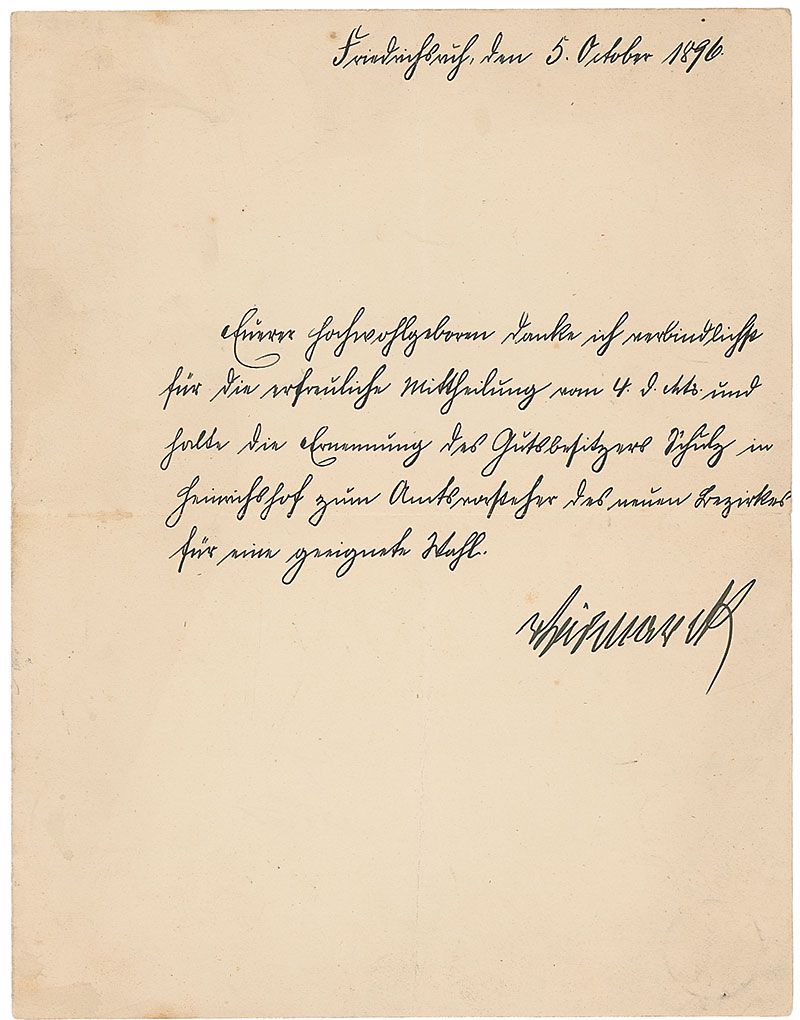 Friedrichsruh, den 5. October 1896.
Euerer Hochwohlgeboren danke ich verbindlichst
für die erfreuliche Mittheilung vom 4. d. Mts. und
halte die Ernennung des Gutsbesitzers Schulz in
Heinrichshof zum Amtsvorsteher des neuen Bezirkes
für eine geeignete Wahl.
vBismarck